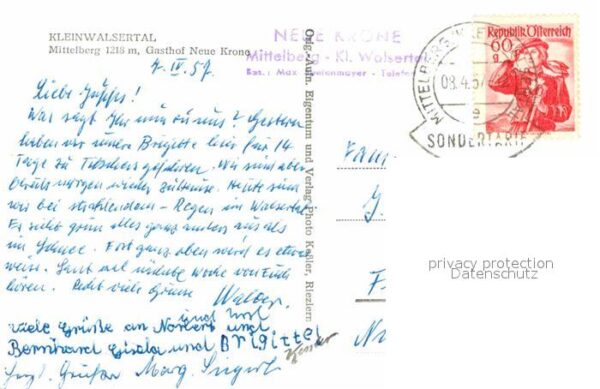 KLEINWALSERTAL
Mittelberg 1218 m, Gasthof Neue Krone
7. IV. 57.
Liebe
Was sagt Ihr nun zu uns? Gestern
haben wir unsere Brigitte hier für 14
Tage zu gefahren. Wir sind aber
bereits morgen wieder zuhause. Heute sind
wir bei strahlendem - Regen im Walsertal.
Es sieht grün alles ganz anders aus als
im Schnee. Fort ganz oben wird es etwas
weiss. Lasst mal nächste Woche von Euch
hören. Recht viele Grüsse
Walter
und
viele Grüße an Norbert und
Bernhard Gisela und Brigitte
Grüße Marg.
Orig.-Aufn. Eigentum und Verlag Photo Keßler, Riezlern
NEUE KRONE
Mittelberg - Kl. Walsertal
Bes.: Max - Telefon
MITTELBERG
08.4.57
e
SONDERTARIF
Republik Österreich
60
g
Fam.
privacy protection
Datenschutz